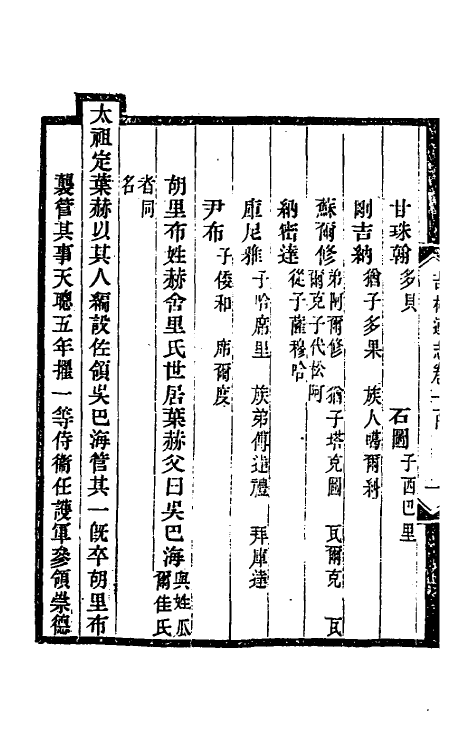 甘珠翰多貝　石圖子西巴里
剛吉納猶子多果　族人噶爾科
蘇爾修弟阿爾修　猶子塔克圖　瓦爾克　瓦爾克子代松阿
納密達從子薩穆哈
庫尼雅子哈席里　族弟傅達禮　拜庫達
尹布子倭和　席爾度
胡里布姓赫舍里氏世居葉赫父曰吳巴海與姓瓜爾佳氏
者同名
太祖定葉赫以其人編設佐領吳巴海管其一既卒胡里布
襲管其事天聰五年擢一等侍衛任護軍參領崇德
吉林通志卷一百